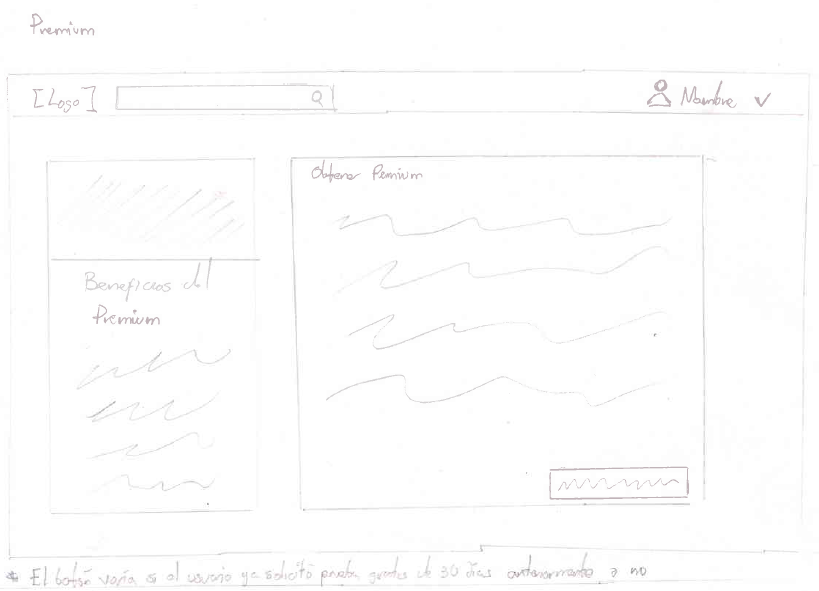 Premium
[Logo]
Nombre
Obtener Pemium
Beneficios del
Premium
* El botón varía si el usuario ya solicitó prueba gratis de 30 días anteriormente o no